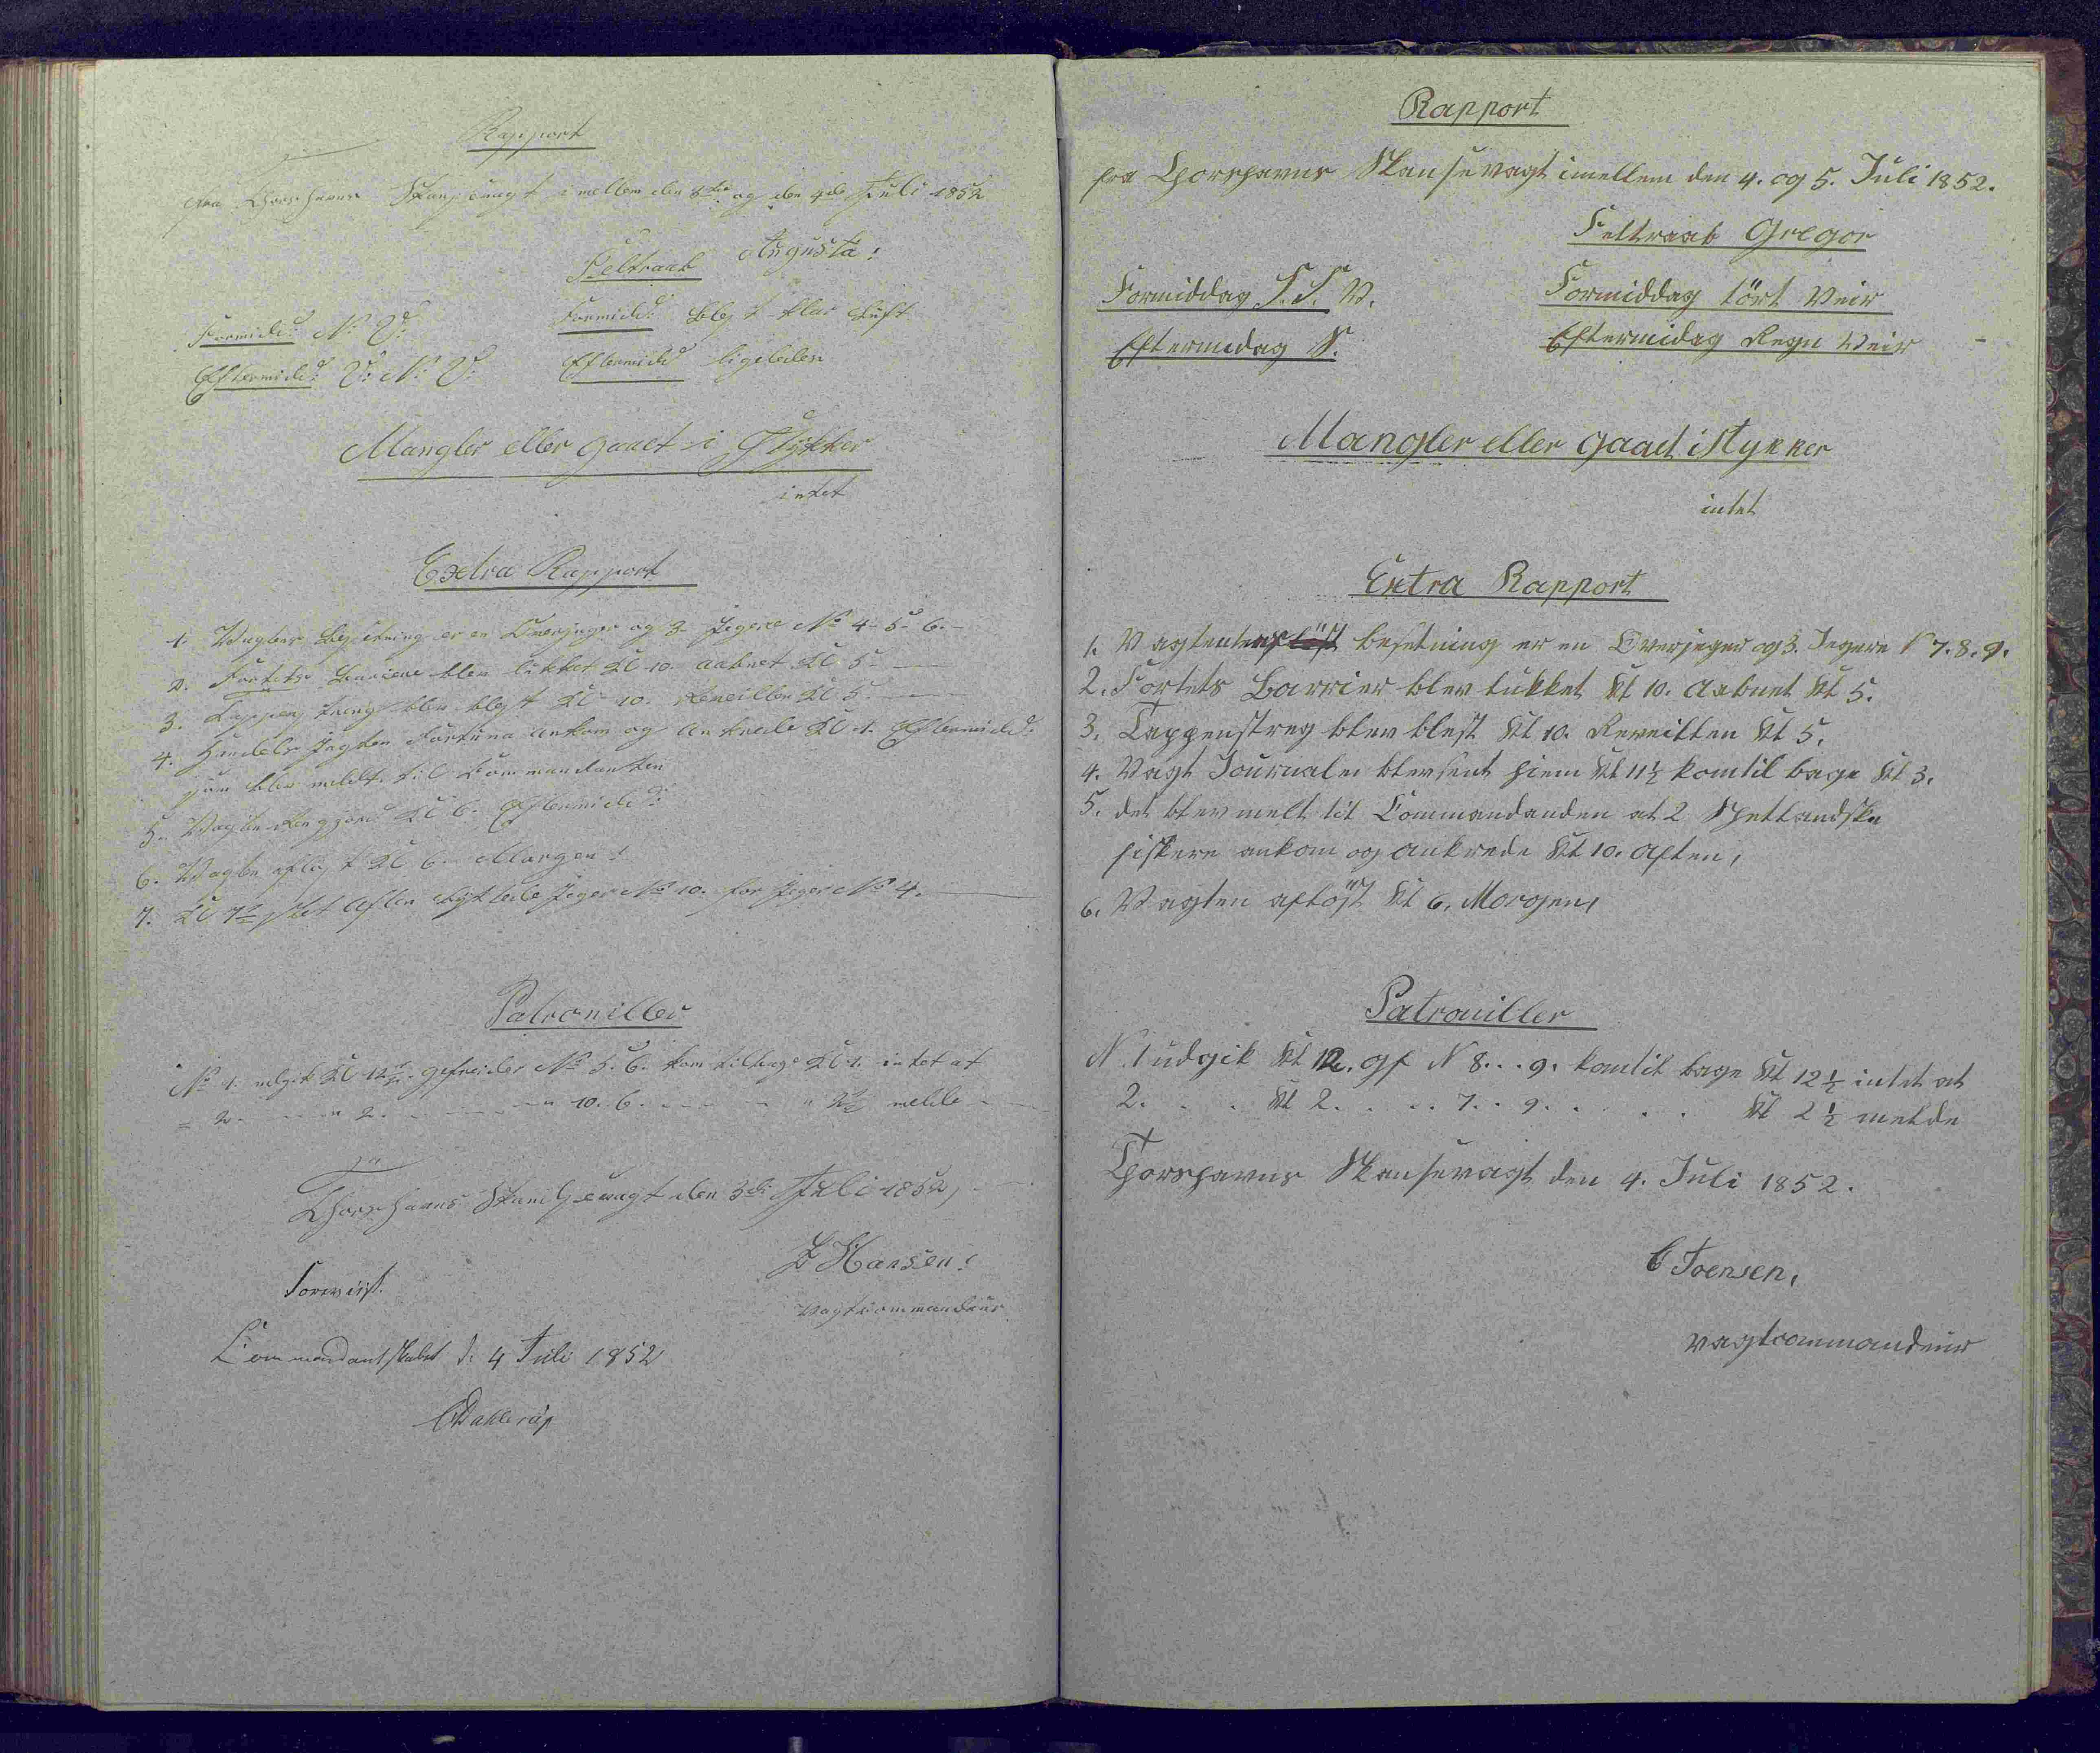 Rapport
fra Thorshavns Skansevagt imellem den 3die og den 4de Juli 1852
Feltraab Augusta:
Formidd: N: V:
Formidd: blest klar Luft
Eftermidd: V: N: V:
Eftermidd ligeledes
Mangler eller gaaet i Stykker
intet
Extra Rapport
1. Vagtens Besetning er en Overjeger og 3 Jegere No 4 - 5 - 6. -
2. Fortets Barriere blev lukket Kl 10. aabnet Kl 5 -
3. Tappenstreng blev blest Kl 10. Reveillen Kl 5 -
4. Handels Jagten Fortuna ankom og ankrede Kl 1. Eftermidd:
hun blev meldt til Commandanten
5. Vagten Rengjord Kl 6. Eftermidd:
6. Vagten afløst Kl 6. Morgen:
7. Kl 7½ Aften byttede Jeger No 10. for Jeger No 4.
Patrouiller
No 1. udgik Kl 12½. gefreider No 5. 6. kom tilbage Kl 1. intet at
" 2. - - " 2. - - - " 10. 6. - - - " 2½ melde -
Thorshavns Skansevagt den 3die Juli 1852,
Hansen:
Vagtcommandeur
Foreviist.
Commandantskabet d: 4 Juli 1852
CDahlerup
Rapport
fra Thorshavns Skansevagt imellem den 4. og 5. Juli 1852.
Feltraab Gregor
Formiddag S. S. V.
Formiddag tört Veir
Eftermedag S.
Eftermidag Regn Veir
Mangler eller gaaet i Stykker
intet
Extra Rapport
1. Vagtens besetning er en Overjeger og 3. Jegere N 7. 8. 9.
2. Fortets Barrier blev lukket Kl 10. Aabnet Kl 5.
3. Tappenstreg blev blest Kl 10. Reveillen Kl 5.
4. Vagt Journalen blev sent hiem Kl 11½ kom til bage Kl 3.
5. det blev melt til Commandanden at 2 Shetlandske
fiskere ankom og ankrede Kl 10. Aften,
6. Vagten aflöst Kl 6. Morgen,
Patrouiller
N 1 udgik Kl 12. gf N 8. . . 9. kom til bage Kl 12½ intet at
2. . . Kl 2. . . . 7. . 9. . . . . Kl 2½ melde
Thorshavns Skansevagt den 4. Juli 1852.
Joensen,
vagtcommandeur